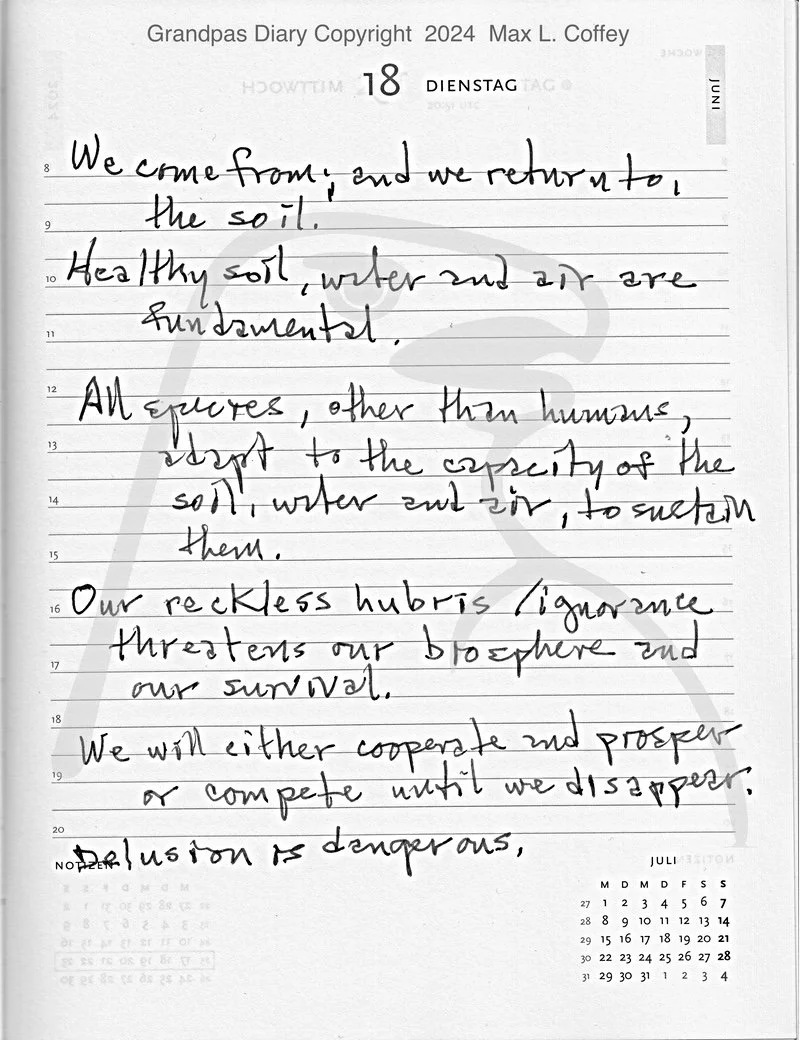 Grandpas Diary Copyright 2024 Max L. Coffey
18 DIENSTAG
JUNI
8 We come from; and we return to,
9 the soil.
10 Healthy soil, water and air are
11 fundamental.
12 All species, other than humans,
13 adapt to the capacity of the
14 soil, water and air, to sustain
15 them.
16 Our reckless hubris / ignorance
threatens our biosphere and
17 our survival.
18 We will either cooperate and prosper
19 or compete until we disappear.
20
Delusion is dangerous.
NOTIZEN
JULI
M D M D F S S
27 1 2 3 4 5 6 7
28 8 9 10 11 12 13 14
29 15 16 17 18 19 20 21
30 22 23 24 25 26 27 28
31 29 30 31 1 2 3 4